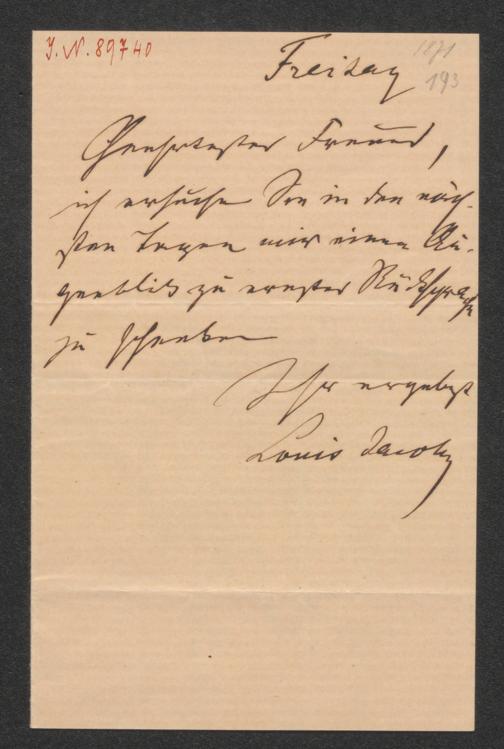 J.N. 89740
1871
193
Freitag
Geehrtester Freund,
ich ersuche Sie in den näch-
sten Tagen mir einen Au-
genblick zu ernster Rücksprache
zu schenken
Ihr ergebenst
Louis Jacoby